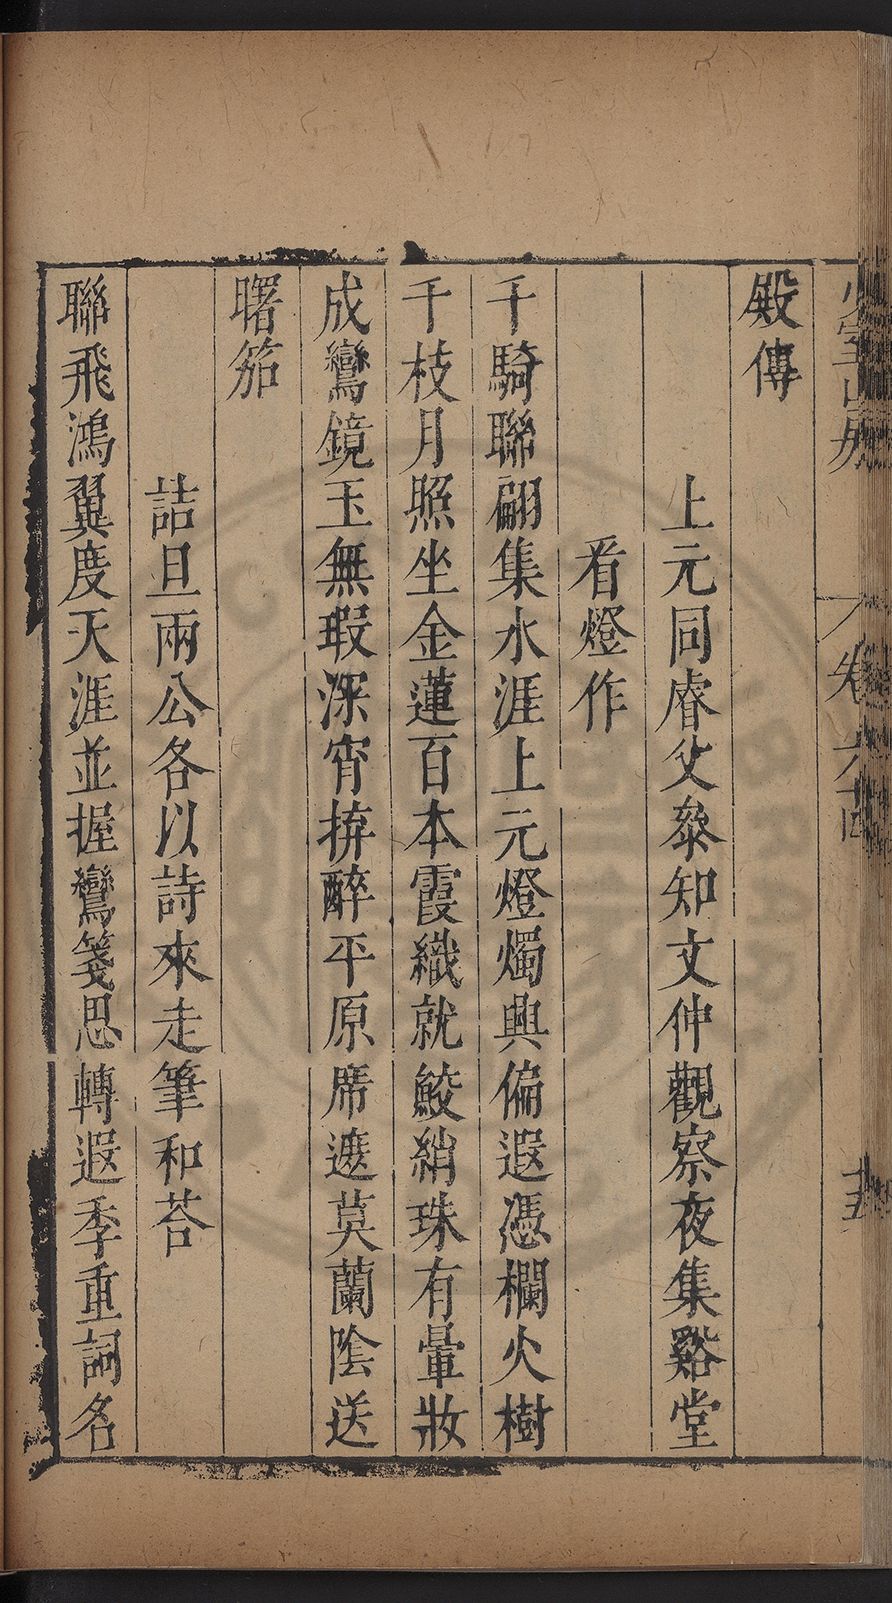 殿傳
上元同睿父叅知文仲觀察夜集谿堂
看燈作
千騎聯翩集水涯上元燈燭興偏遐憑欄火樹
千枝月照坐金蓮百本霞織就鮫綃珠有暈妝
成鸞鏡玉無瑕深宵拚醉平原席遮莫蘭隂送
曙笳
詰旦兩公各以詩來走筆和荅
聯飛鴻翼度天涯並握鸞箋思轉遐季重詞名